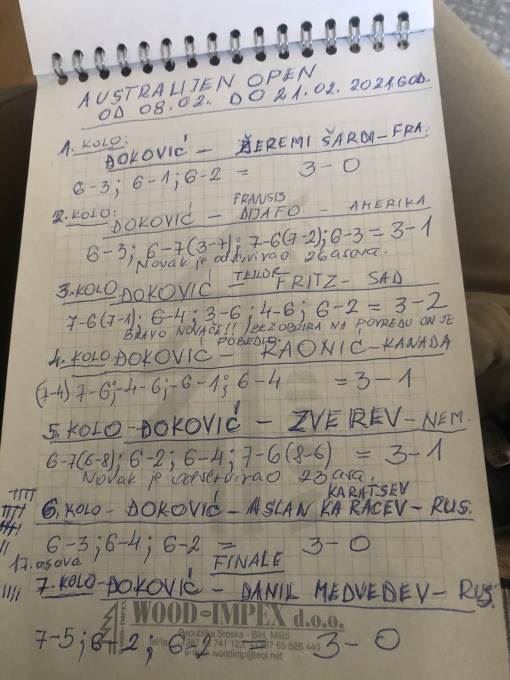 AUSTRALIJEN OPEN
OD 08.02. DO 21.02.2021.GOD.
1. KOLO:
ĐOKOVIĆ – ŽEREMI ŠARDI-FRA.
6-3; 6-1; 6-2 = 3-0
2. KOLO: FRANSIS
ĐOKOVIĆ – DIJAFO – AMERIKA
6-3; 6-7(3-7); 7-6(7-2); 6-3 = 3-1
Novak je odservirao 26 asova.
TEJLOR
3. KOLO ĐOKOVIĆ – FRITZ – SAD
7-6(7-1); 6-4; 3-6; 4-6; 6-2 = 3-2
BRAVO NOVAČE!! BEZ OBZIRA NA POVREDU ON JE
POBEDIO
4. KOLO ĐOKOVIĆ – RAONIĆ-KANADA
(7-4) 7-6; -4-6; -6-1; 6-4 = 3-1
5. KOLO-ĐOKOVIĆ – ZVEREV-NEM.
6-7(6-8); 6-2; 6-4; 7-6(8-6) = 3-1
Novak je odservirao 23 asa.
KARATSEV
6. KOLO-ĐOKOVIĆ-ASLAN KARACEV-RUS.
6-3; 6-4; 6-2 = 3-0
17. asova
FINALE
7. KOLO-ĐOKOVIĆ-DANIL MEDVEDEV-RUS.
WOOD-IMPEX d.o.o.
Republika Srpska - BiH, Milići
7-5; 6-2; 6-2 = 3-0